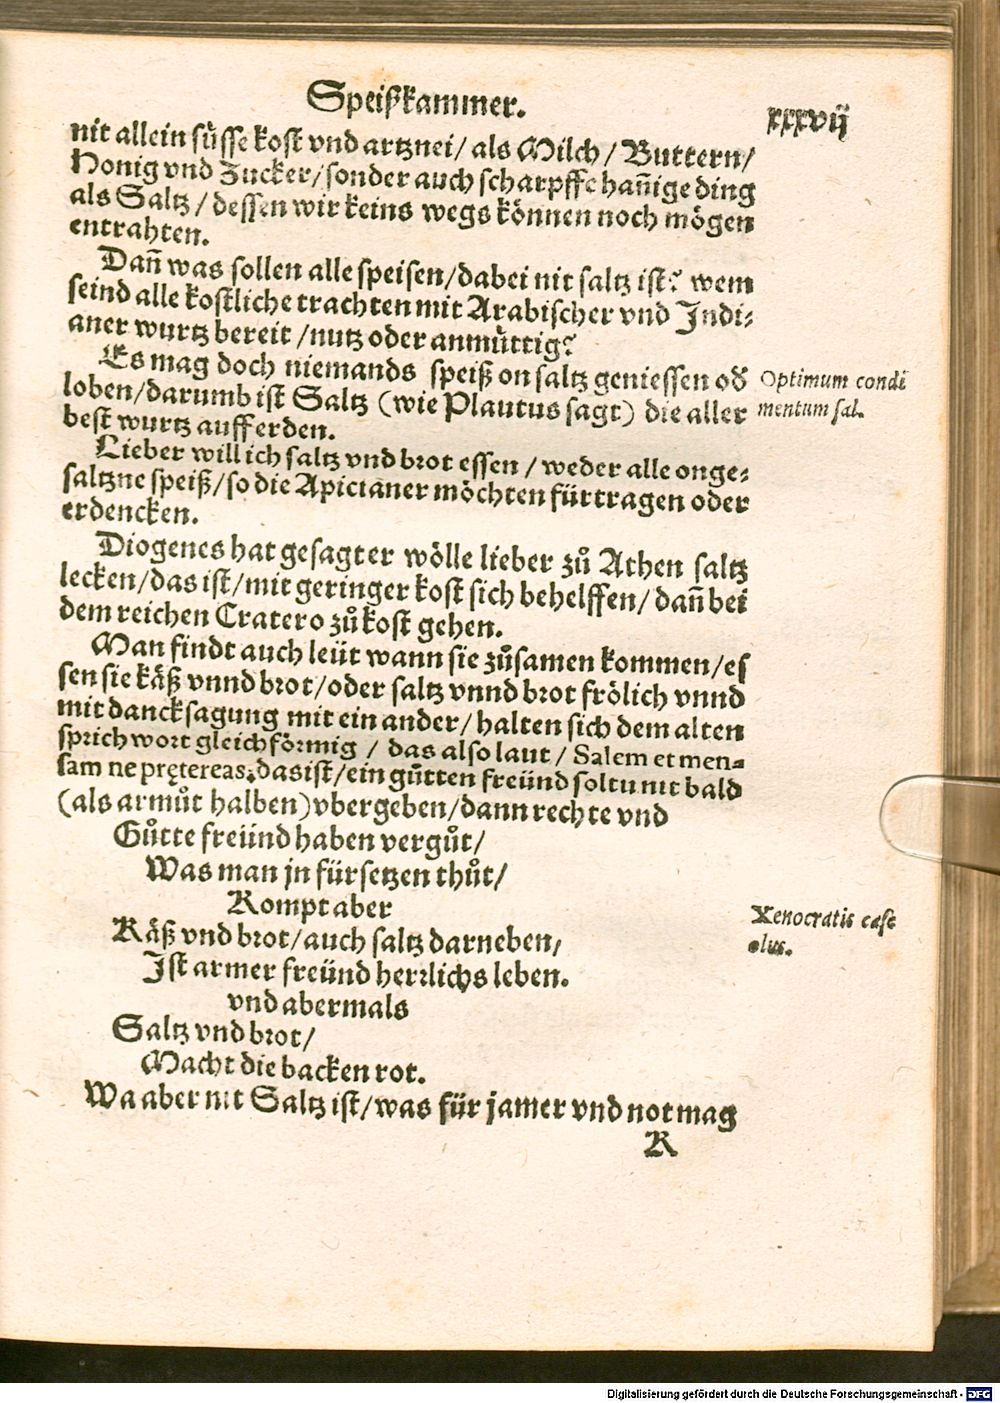 Speißkammer.
xxxvij
nit allein süsse kost vnd artznei/ als Milch/ Buttern/
Honig vnd Zucker/ sonder auch scharpffe hañige ding
als Saltz/ dessen wir keins wegs können noch mögen
entrahten.
Dañ was sollen alle speisen/ dabei nit saltz ist? wem
seind alle kostliche trachten mit Arabischer vnd Indi-
aner wurtz bereit/ nutz oder anmüttig?
Es mag doch niemands speiß on saltz geniessen od
loben/ darumb ist Saltz (wie Plautus sagt) die aller
best wurtz auff erden.
Optimum condi
mentum sal.
Lieber will ich saltz vnd brot essen/ weder alle onge-
saltzne speiß/ so die Apicianer möchten fürtragen oder
erdencken.
Diogenes hat gesagt er wölle lieber zů Athen saltz
lecken/ das ist/ mit geringer kost sich behelffen/ dañ bei
dem reichen Cratero zů kost gehen.
Man findt auch leüt wann sie zůsamen kommen/ es
sen sie käß vnnd brot/ oder saltz vnnd brot frölich vnnd
mit dancksagung mit ein ander/ halten sich dem alten
sprichwort gleichförmig/ das also laut/ Salem et men-
sam ne prętereas. das ist/ ein gůtten freünd soltu nit bald
(als armůt halben) vbergeben/ dann rechte vnd
Gůtte freünd haben vergůt/
Was man jn fürsetzen thůt/
Kompt aber
Käß vnd brot/ auch saltz darneben/
Ist armer freünd herrlichs leben.
Xenocratis case
olus.
vnd abermals
Saltz vnd brot/
Macht die backen rot.
Wa aber nit Saltz ist/ was für jamer vnd not mag
K
Digitalisierung gefördert durch die Deutsche Forschungsgemeinschaft - DFG